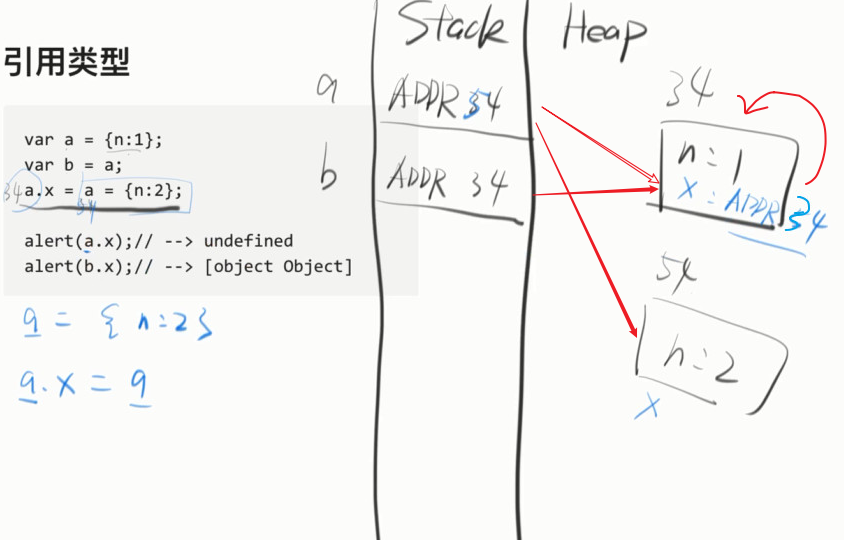 引用类型
var a = {n:1};
var b = a;
a.x = a = {n:2};
34
54
alert(a.x);// --> undefined
alert(b.x);// --> [object Object]
a = { n:2}
a.x = a
Stack
Heap
a
ADDR 54
b
ADDR 34
34
n:1
x:ADDR 54
54
n:2
x